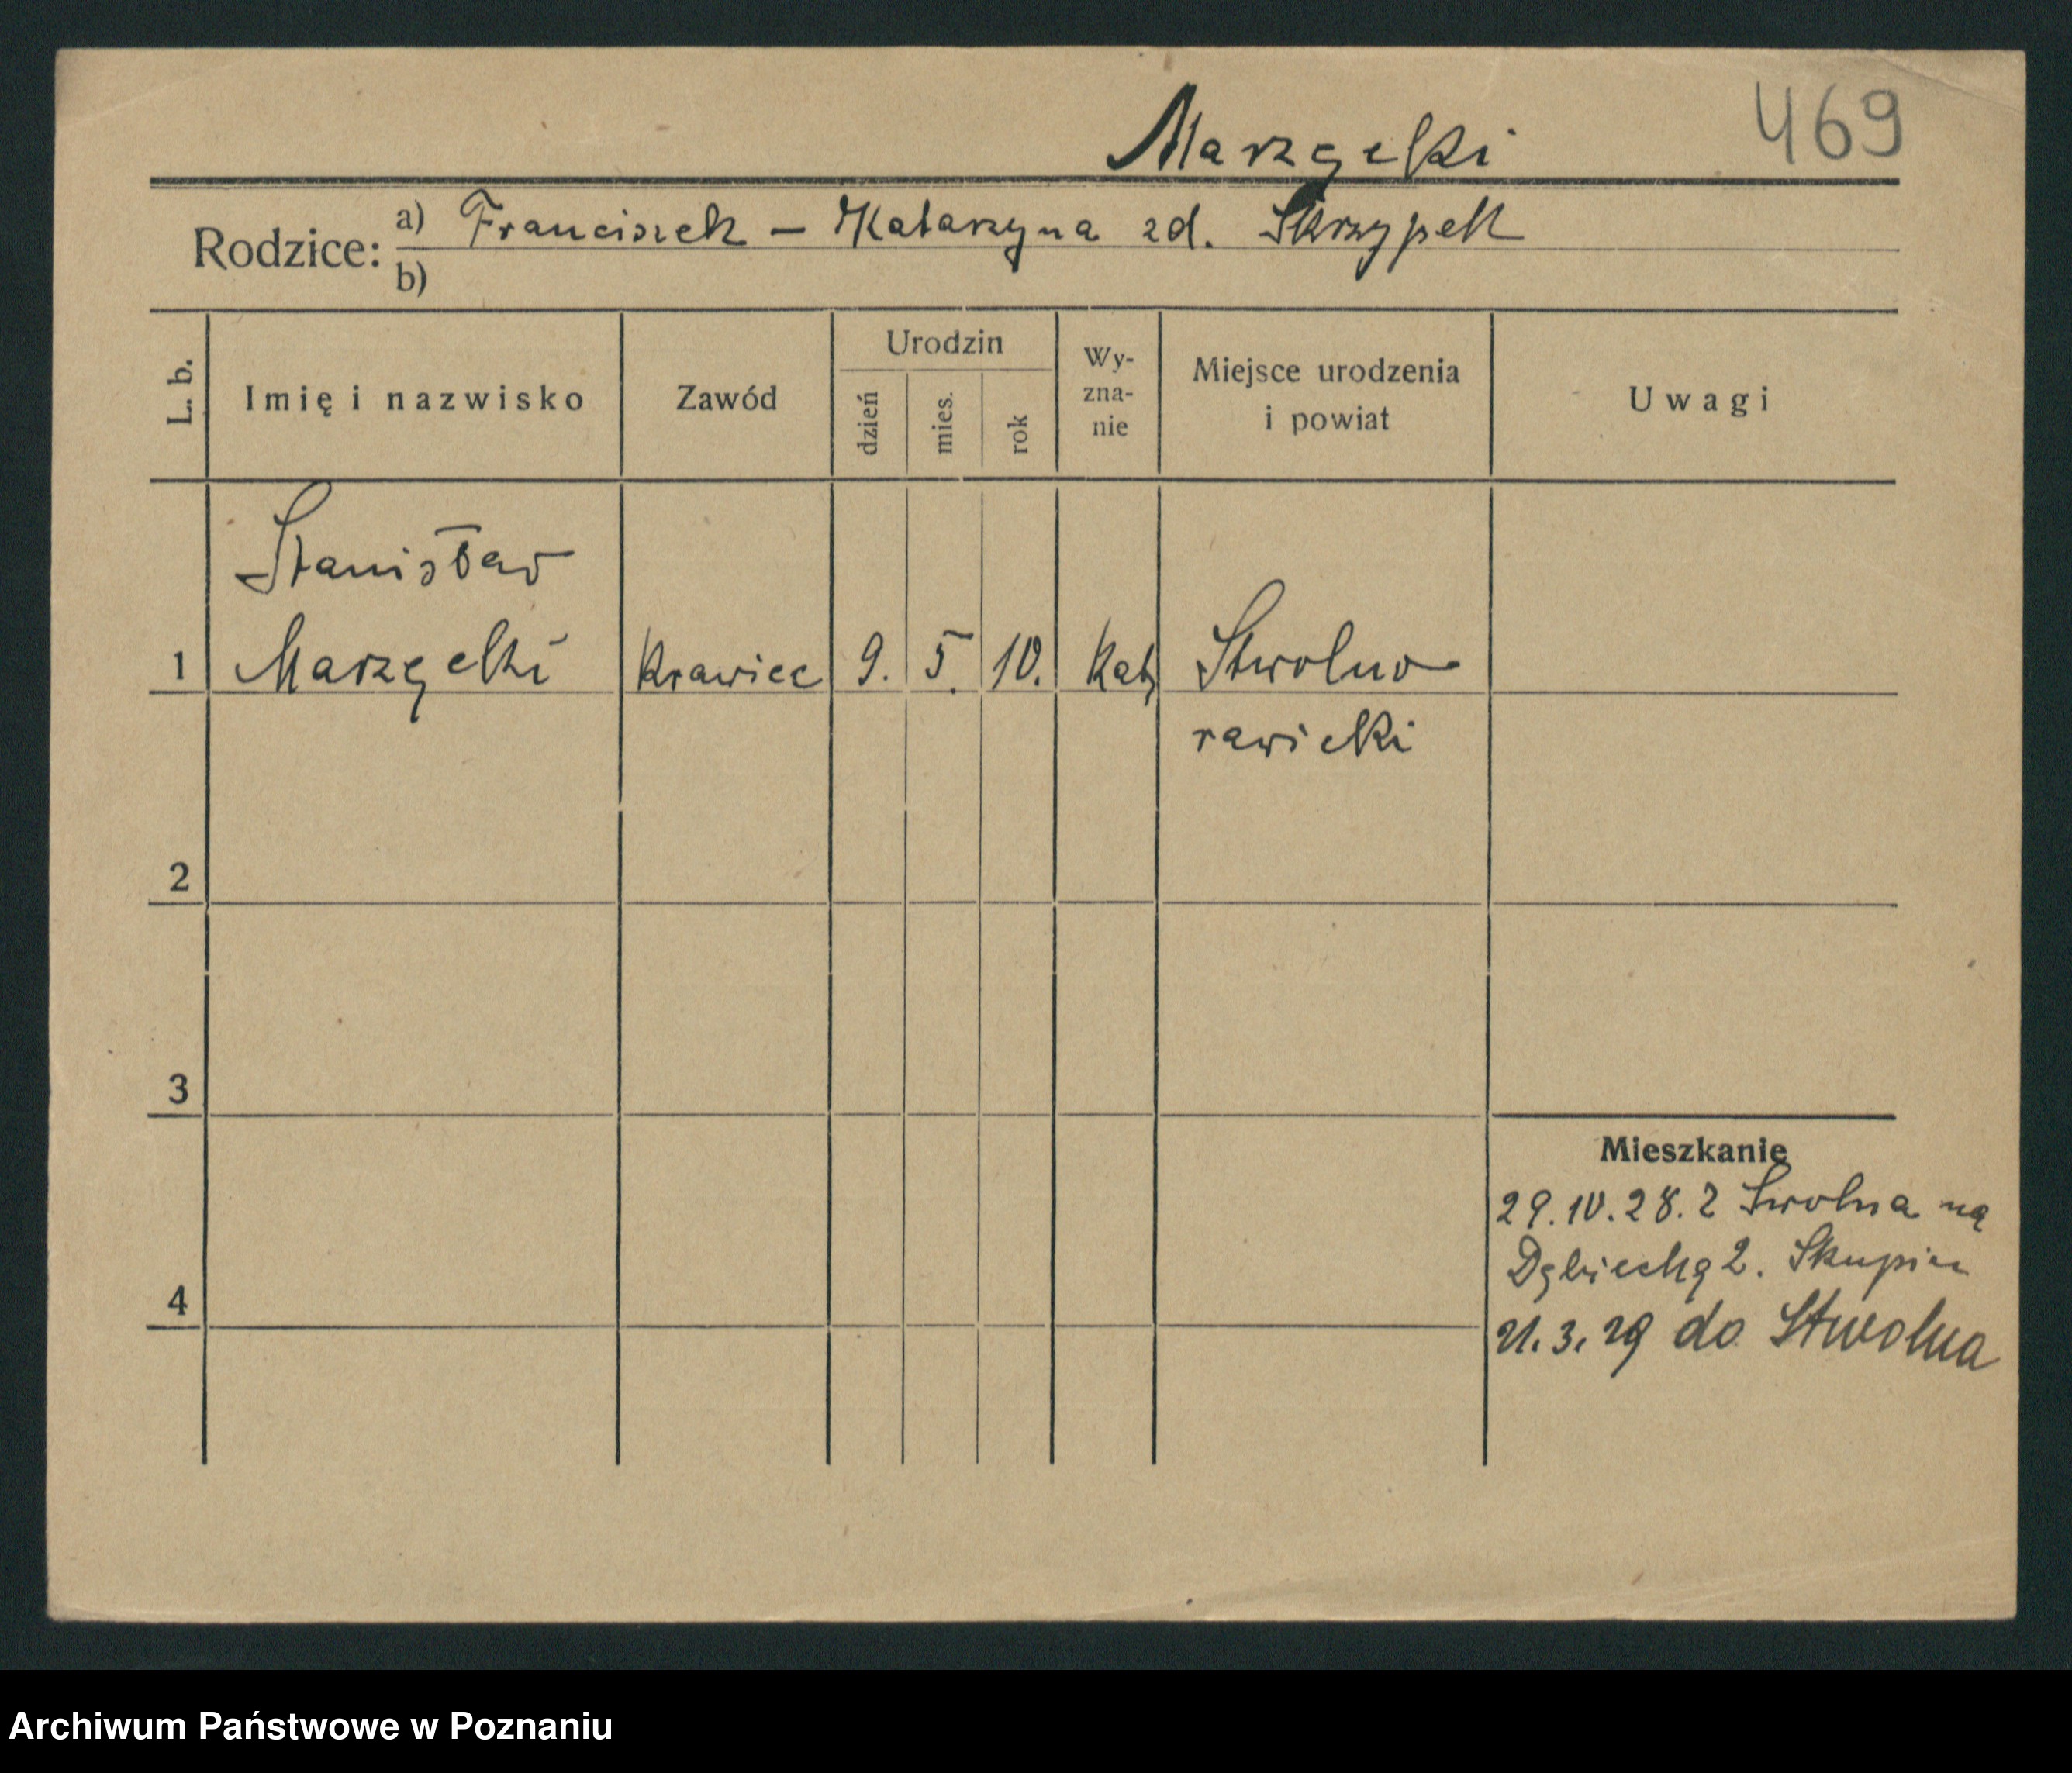 Marzęcki
469
Rodzice: a) Franciszek – Katarzyna zd. Skrzypek
b)
L. b.
Imię i nazwisko
Zawód
Urodzin
dzień
mies.
rok
Wy-
zna-
nie
Miejsce urodzenia
i powiat
Uwagi
Stanisław
1 Marzęcki krawiec 9. 5. 10. kat, Stwolno
rawicki
2
3
4
Mieszkanie
29.10.28. z Stwolna na
2. Skupin
21.3.29 do Stwolna
Archiwum Państwowe w Poznaniu